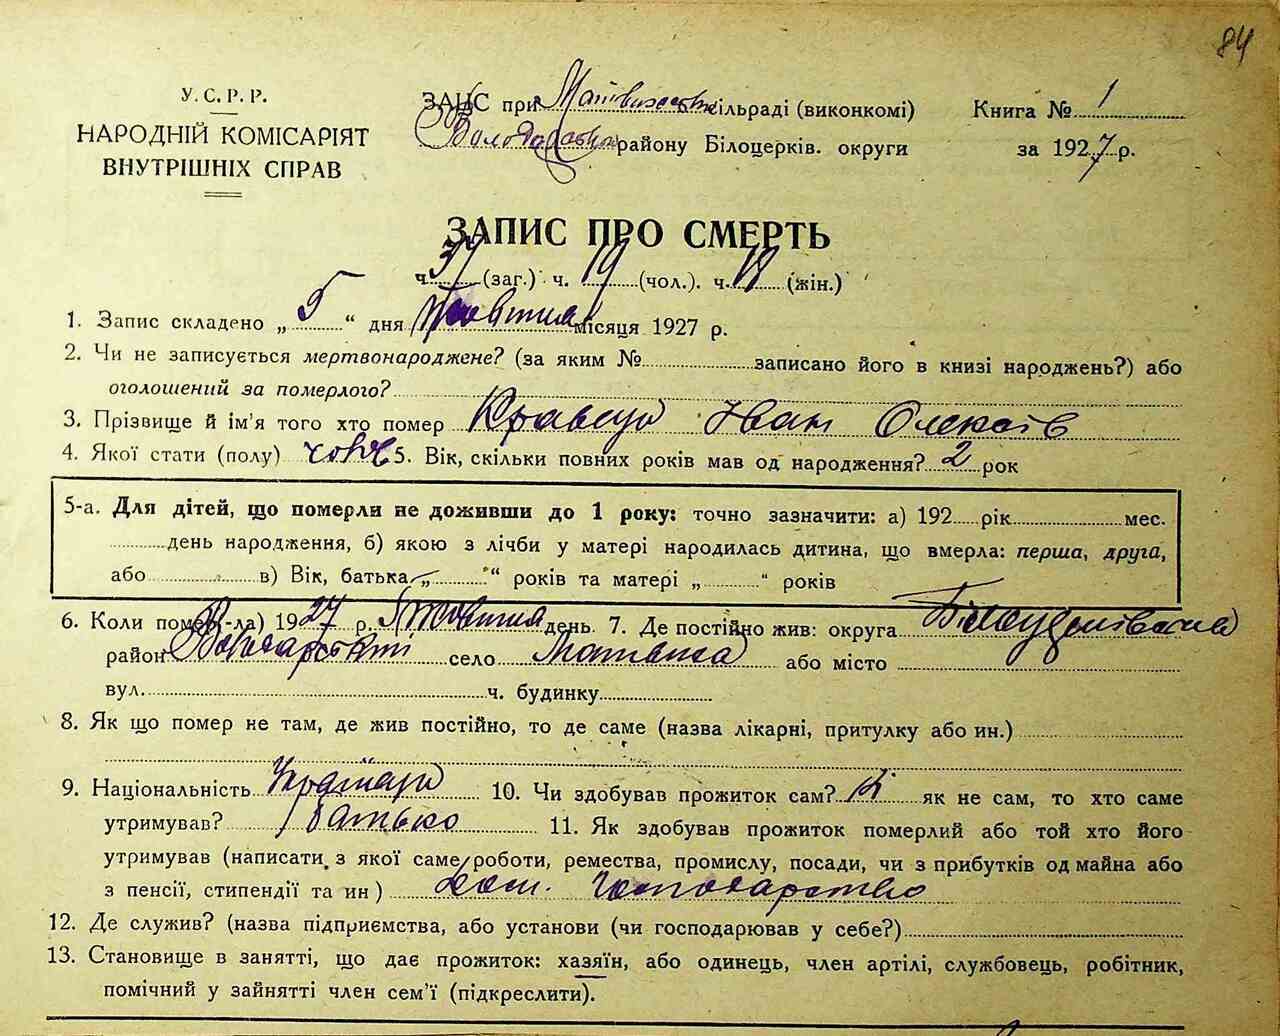 84
У.С.Р.Р.
НАРОДНІЙ КОМІСАРІЯТ
ВНУТРІШНІХ СПРАВ
ЗАПИС при сільраді (виконкомі)
району Білоцерків. округи
Книга № 1
за 1927 р.
ЗАПИС ПРО СМЕРТЬ
ч. 37 (заг.) ч. 19 (чол.). ч. 18 (жін.)
1. Запис складено „ 5 “ дня Жовтня місяця 1927 р.
2. Чи не записується мертвонароджене? (за яким № записано його в книзі народжень?) або
оголошений за померлого?
3. Прізвище й ім'я того хто помер Кравець Іван Олексів
4. Якої стати (полу) 5. Вік, скільки повних років мав од народження? 2 рок
5-а. Для дітей, що померли не доживши до 1 року: точно зазначити: а) 192 рік мес.
день народження, б) якою з лічби у матері народилась дитина, що вмерла: перша, друга,
або в) Вік, батька „ “ років та матері „ “ років
6. Коли помер(-ла) 1927 р. Жовтня день. 7. Де постійно жив: округа
район село або місто
вул. ч. будинку
8. Як що помер не там, де жив постійно, то де саме (назва лікарні, притулку або ин.)
9. Національність 10. Чи здобував прожиток сам? ні як не сам, то хто саме
утримував? батько 11. Як здобував прожиток померлий або той хто його
утримував (написати з якої саме роботи, ремества, промислу, посади, чи з прибутків од майна або
з пенсії, стипендії та ин) господарство
12. Де служив? (назва підприємства, або установи (чи господарював у себе?)
13. Становище в занятті, що дає прожиток: хазяїн, або одинець, член артілі, службовець, робітник,
помічний у зайнятті член сем'ї (підкреслити).